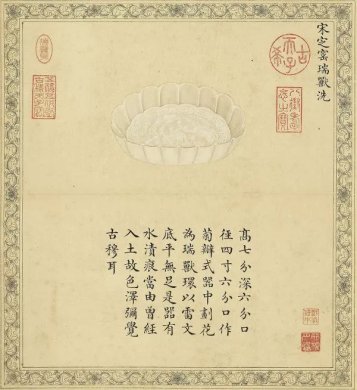 宋定窰瑞獸洗
古希天子
八徵耄念之寶
高七分深六分口
徑四寸六分口作
菊瓣式器中劃花
為瑞獸環以雷文
底平無足是器有
水漬痕當由曾經
入土故色澤彌覺
古穆耳